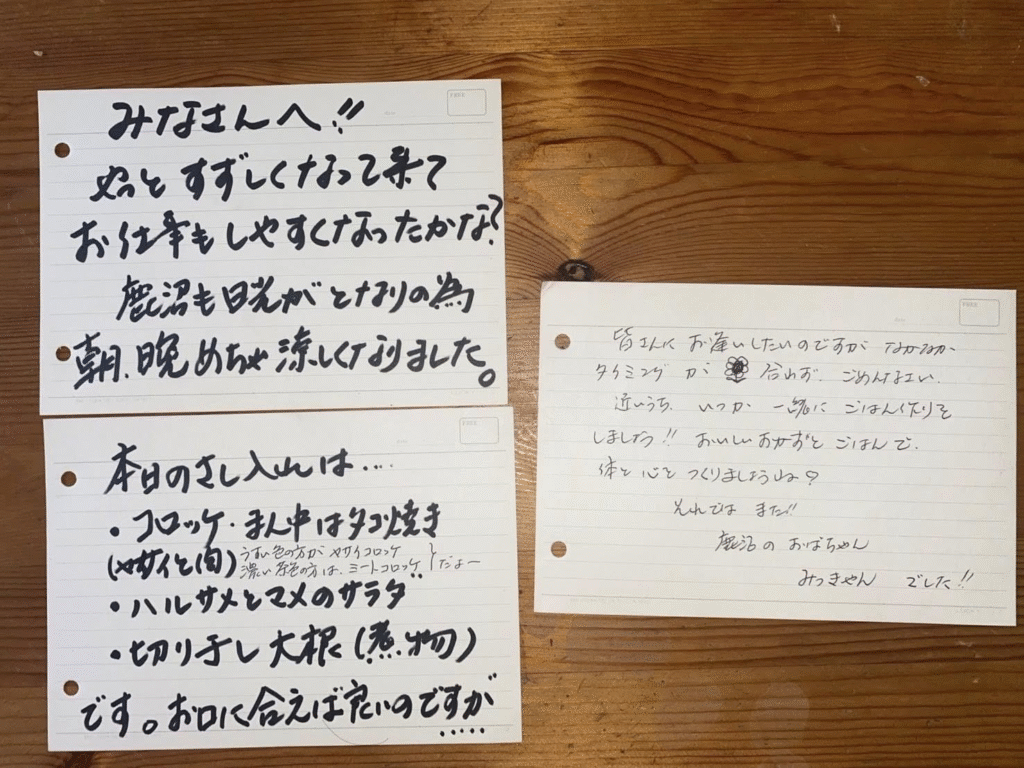 みなさんへ!!
やっとすずしくなって来て
お仕事もしやすくなったかな?
鹿沼も日光がとなりの為
朝、晩めちゃ涼しくなりました。
本日のさし入れは....
・コロッケ・まん中はタコ焼き
(ヤサイと肉)うすい色の方がヤサイコロッケ
濃い茶色の方は、ミートコロッケ}だよー
・ハルサメとマメのサラダ
・切り干し大根(煮物)
です。お口に合えば良いのですが
.....
皆さんにお逢いしたいのですがなかなか
タイミングが合わず、ごめんなエい、
近いうち、いつか一緒にごはん作りを
しましょう!!おいしいおかずとごはんで、
体と心をつくりましょうね?
それではまた!!
鹿沼のおばちゃん
みっきゃんでした!!